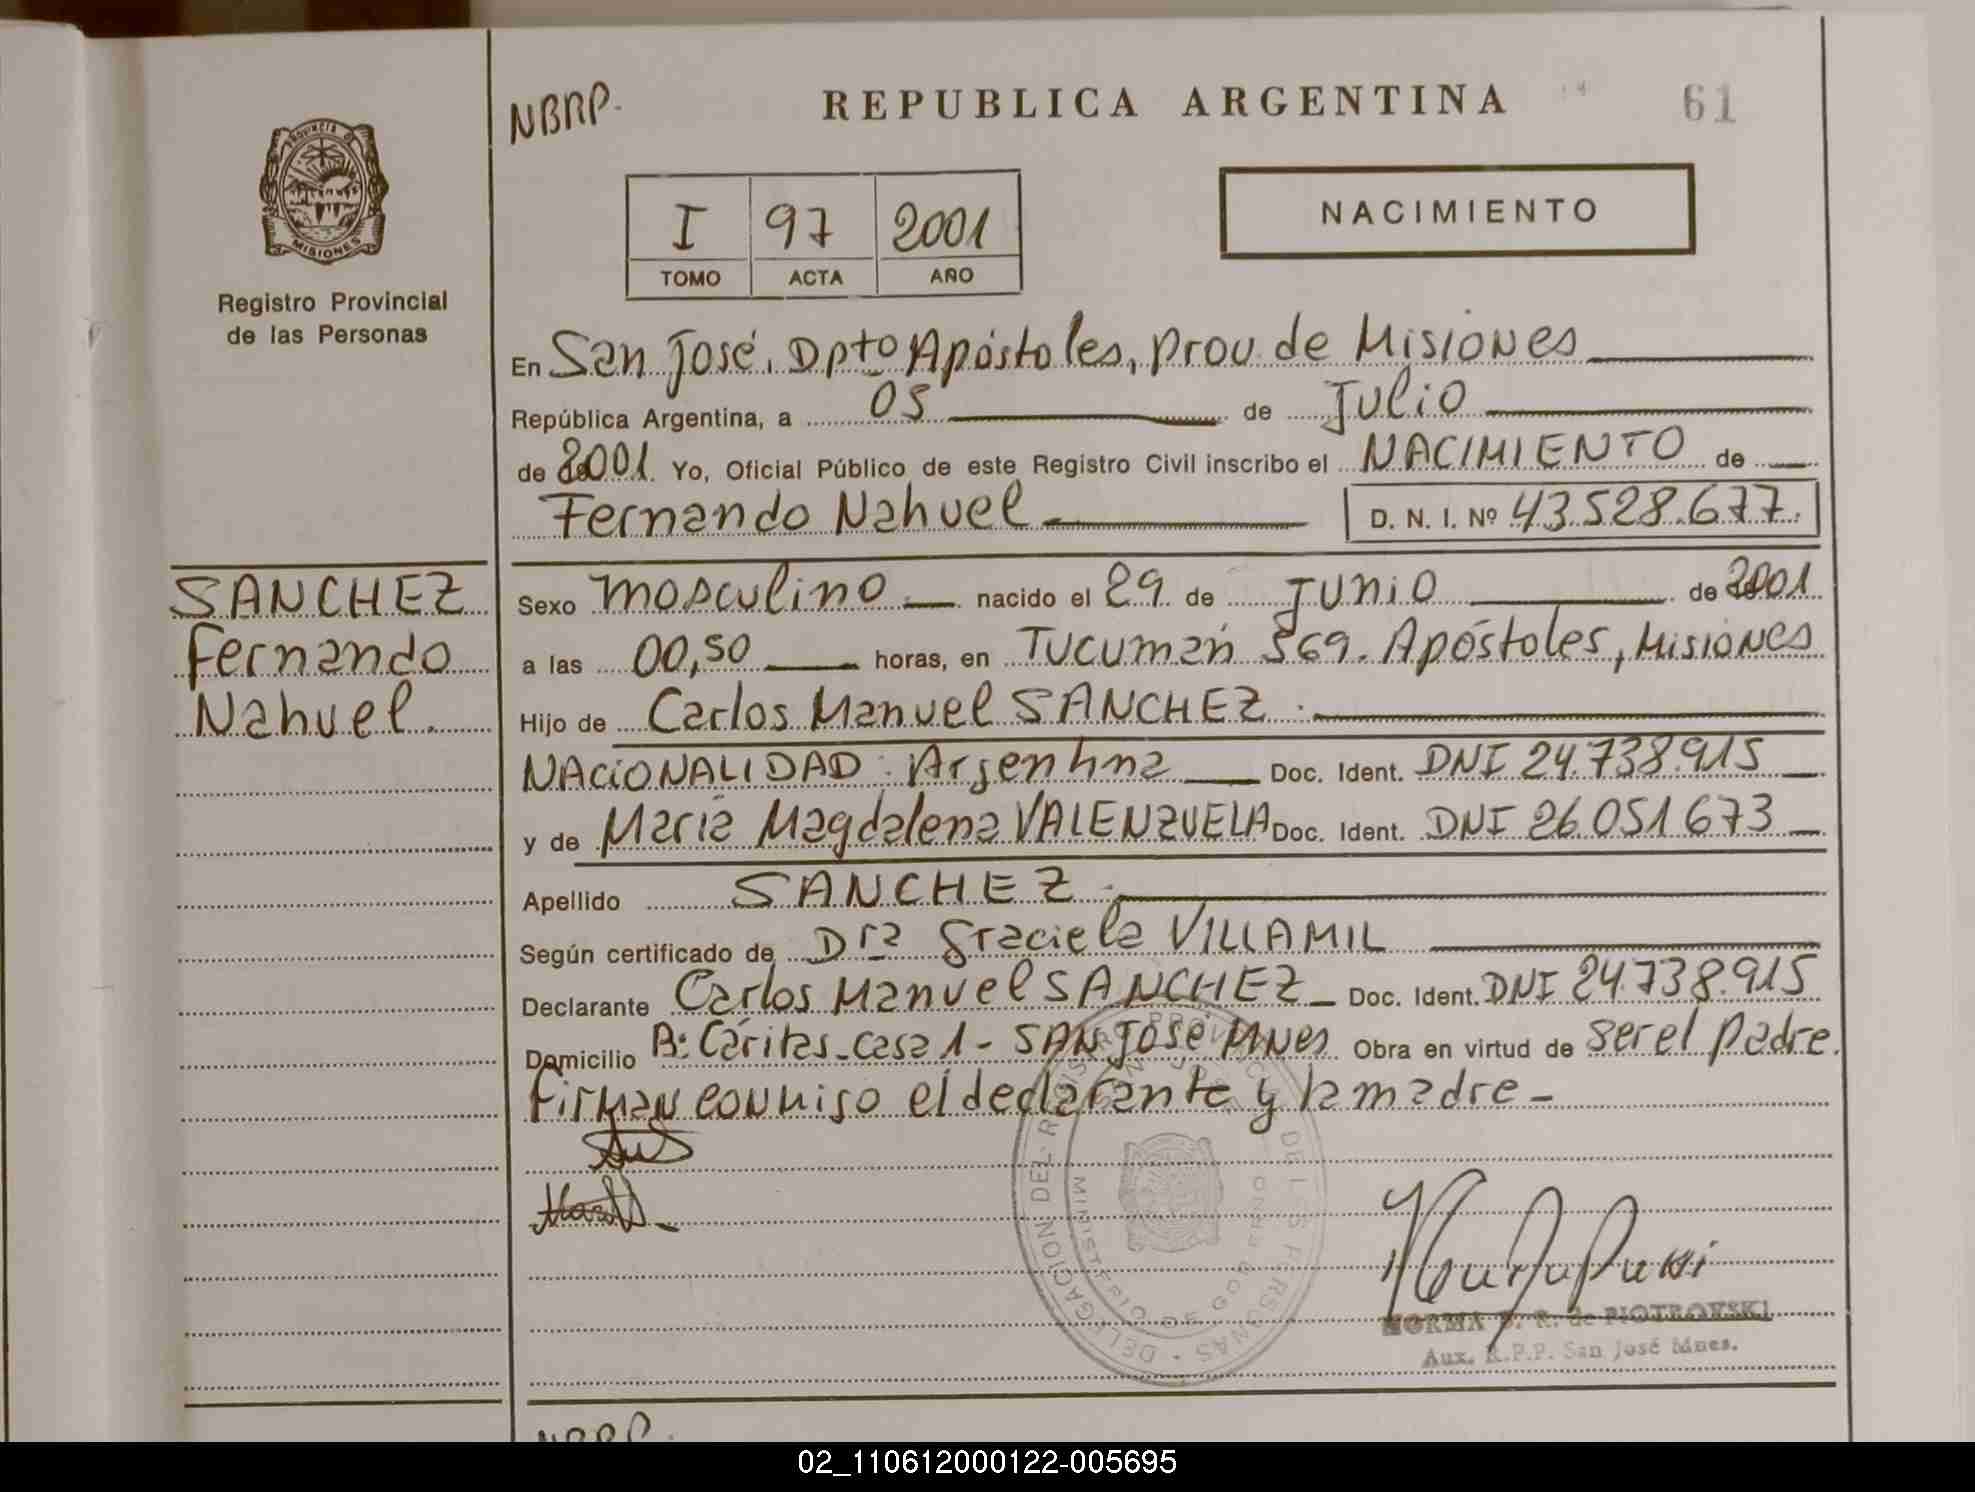 NBRP.
REPUBLICA ARGENTINA
61
PROVINCIA DE
MISIONES
Registro Provincial
de las Personas
I 97 2001
TOMO ACTA AÑO
NACIMIENTO
En San José, Dpto Apóstoles, Prov. de Misiones
República Argentina, a 05 de Julio
de 2001 Yo, Oficial Público de este Registro Civil inscribo el NACIMIENTO de
Fernando Nahuel D. N. I. Nº 43.528.677.
SANCHEZ
Fernando
Nahuel.
Sexo masculino nacido el 29 de Junio de 2001
a las 00,50 horas, en Tucumán 569. Apóstoles, Misiones
Hijo de Carlos Manuel SANCHEZ.
NACIONALIDAD: Argentina Doc. Ident. DNI 24.738.915
y de Maria Magdalena VALENZUELA Doc. Ident. DNI 26051673
Apellido SANCHEZ.
Según certificado de Dra Graciela VILLAMIL
Declarante Carlos Manuel SANCHEZ Doc. Ident. DNI 24.738.915
Domicilio Bº Cáritas-casa 1 - SAN José Mnes Obra en virtud de ser el padre.
Firman conmigo el declarante y la madre -
DELEGACION DEL REGISTRO PROVINCIAL DE LAS PERSONAS
MINISTERIO DE GOBIERNO
NORMA B. R. de PIOTROVSKI
Aux. R.P.P. San José Mnes.
NBRP.
02_110612000122-005695